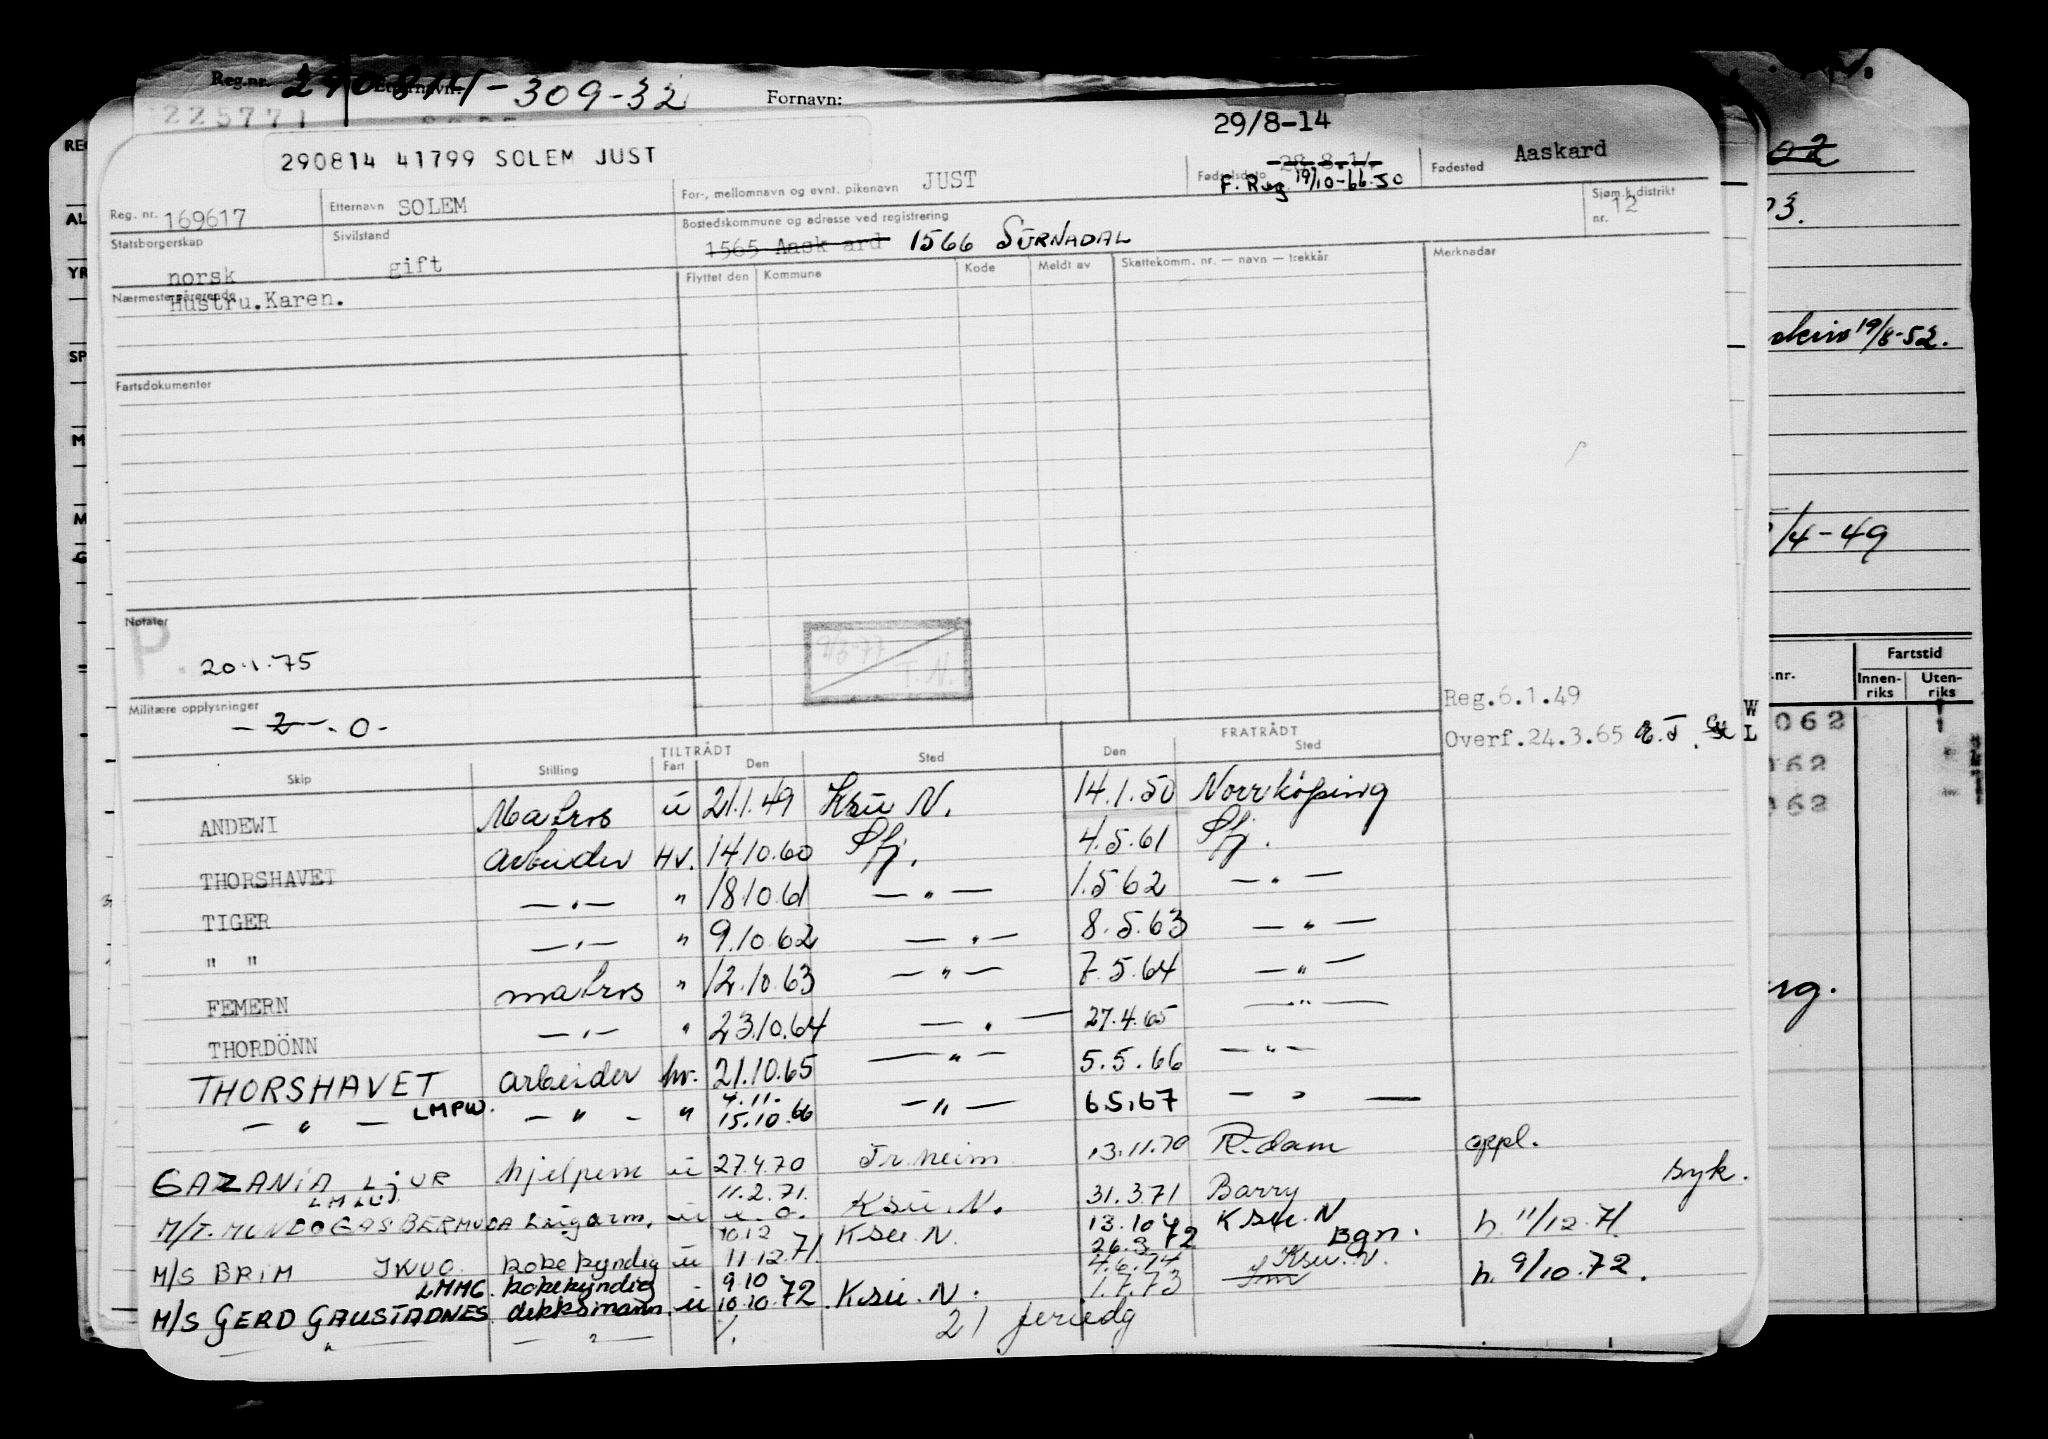 Reg.nr. 290814-309-32 Fornavn:
225771
29/8-14
290814 41799 SOLEM JUST
Reg. nr. 169617 Etternavn SOLEM For-, mellomnavn og evnt. pikenavn JUST Fødselsdato 28.8.14 Fødested Aaskard
F. Reg 19/10-66-50
Statsborgerskap norsk Sivilstand gift Bostedskommune og adresse ved registrering 1565 Aaskard 1566 SURNADAL Sjøm.k.distrikt nr. 12
Nærmeste pårørende Hustru.Karen.
Flyttet den Kommune Kode Meldt av Skattekomm. nr. — navn — trekkår Merknader
Fartsdokumenter
Notater
P. 20.1.75
9/6-77 T.N.
Militære opplysninger
- 2 - . 0 -
Reg.6.1.49
Overf.24.3.65
W
L
TILTRÅDT FRATRÅDT
Skip Stilling Fart Den Sted Den Sted
ANDEWI Matros u 21.1.49 Ksu N. 14.1.50 Norrköping
THORSHAVET arbeider Hv. 14.10.60 Sfj. 4.5.61 Sfj.
TIGER — " — " 18.10.61 — " — 1.5.62 — " —
" " — " — " 9.10.62 — " — 8.5.63 — " —
FEMERN matros " 12.10.63 — " — 7.5.64 — " —
THORDÖNN — " — " 23.10.64 — " — 27.4.65 — " —
THORSHAVET arbeider hv. 21.10.65 — " — 5.5.66 — " —
— " — LMPW. — " — " 4.11.
15.10.66 — " — 6.5.67 — " —
GAZANIA LJUR hjelpem u 27.4.70 Tr.heim 13.11.70 R.dam oppl.
LMLU 11.2.71. 31.3.71 Barry syk.
M/T. MUNDOGAS BERMUDA u u. o. Ksu. N. 13.10 Ksu. N
M/S BRIM JKUO. kokekyndig u 10.12
11.12.71. Ksu. N. 26.3.72 Bgn. h. 11/12.71
LMMG. kokekyndig 9.10 4.6.74 Ksu. N.
M/S GERD GAUSTADNES. dekksmann u 10.10.72 Ksu. N. 1.7.73 h. 9/10.72.
— " — — " — 21 feriedg
Fartstid
Innenriks Utenriks
19/8-52.
/4-49